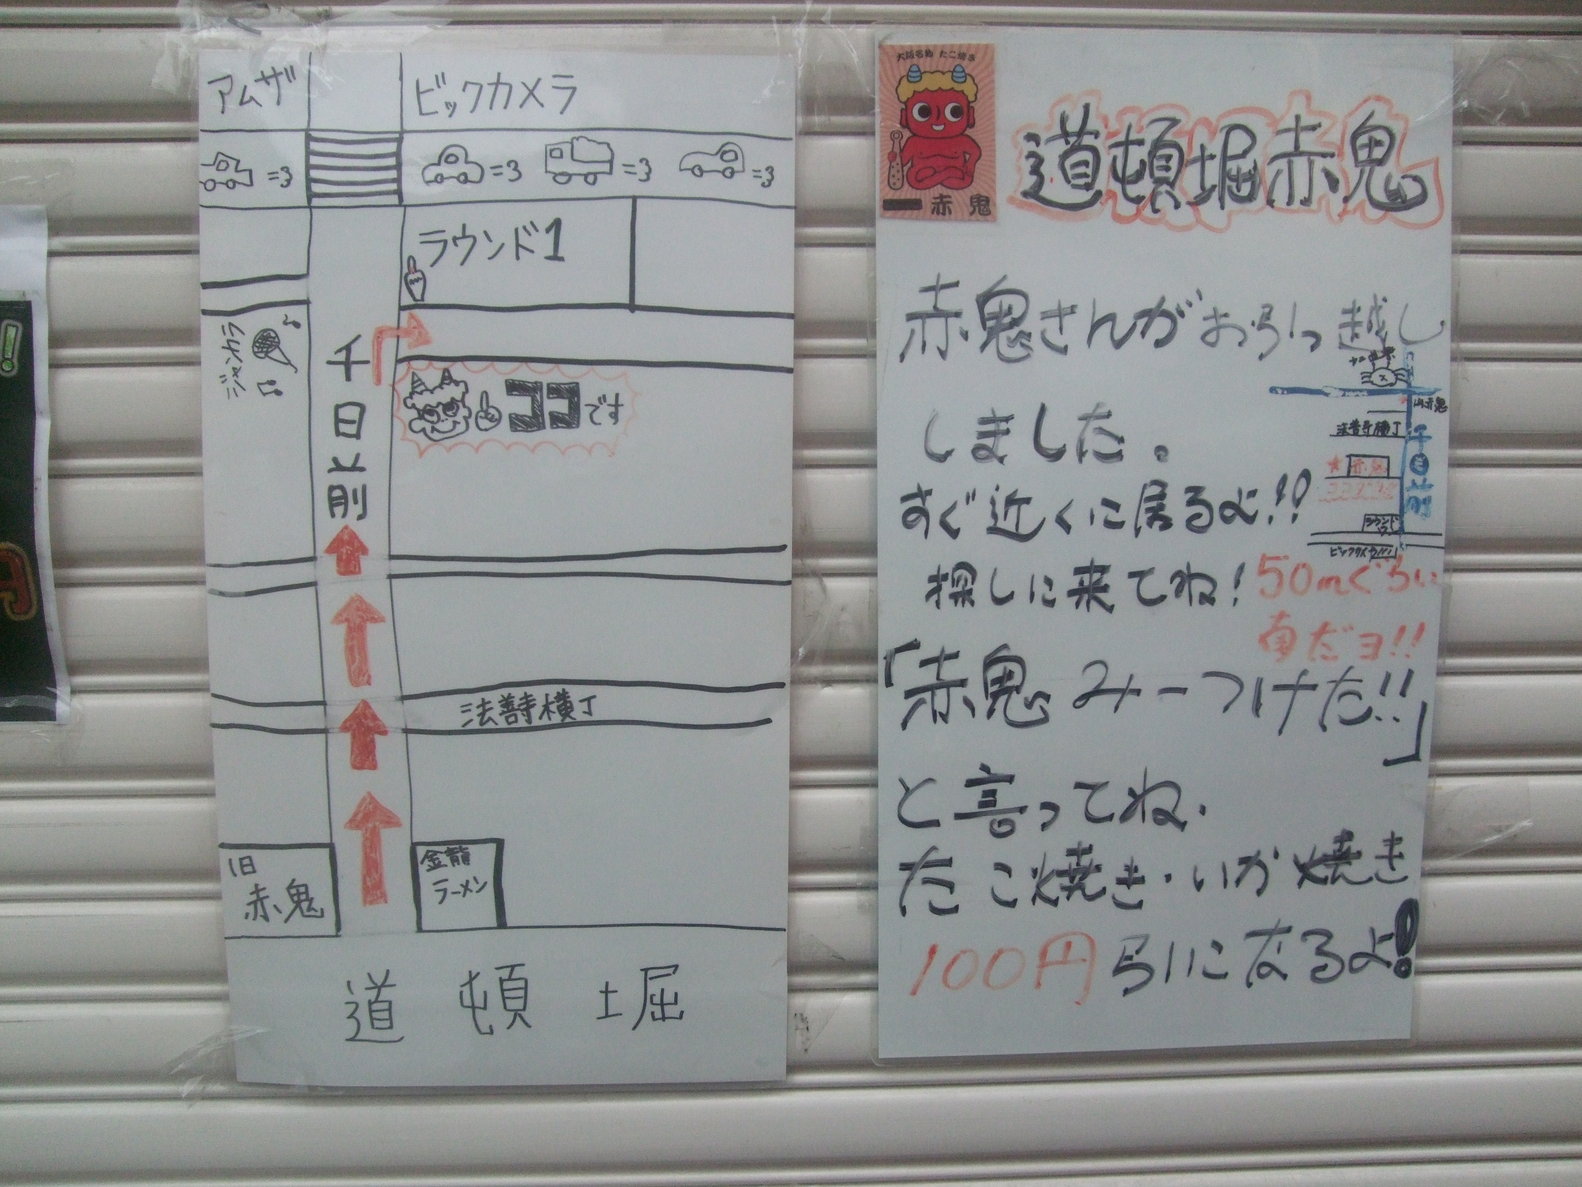 アムザ
ビックカメラ
=3
=3
=3
=3
ラウンド1
ジャンカラ
千日前
ココです
法善寺横丁
旧
赤鬼
金龍
ラーメン
道頓堀
大阪名物 たこ焼き
赤鬼
道頓堀赤鬼
赤鬼さんがお引っ越し
しました。
すぐ近くに居るよ!!
探しに来てね!
50mぐらい
南だヨ!!
法善寺横丁
千日前
赤鬼
ラウンドワン
ビックカメラ
「赤鬼みーつけた!!」
と言ってね.
たこ焼き・いか焼き
100円引になるよ!